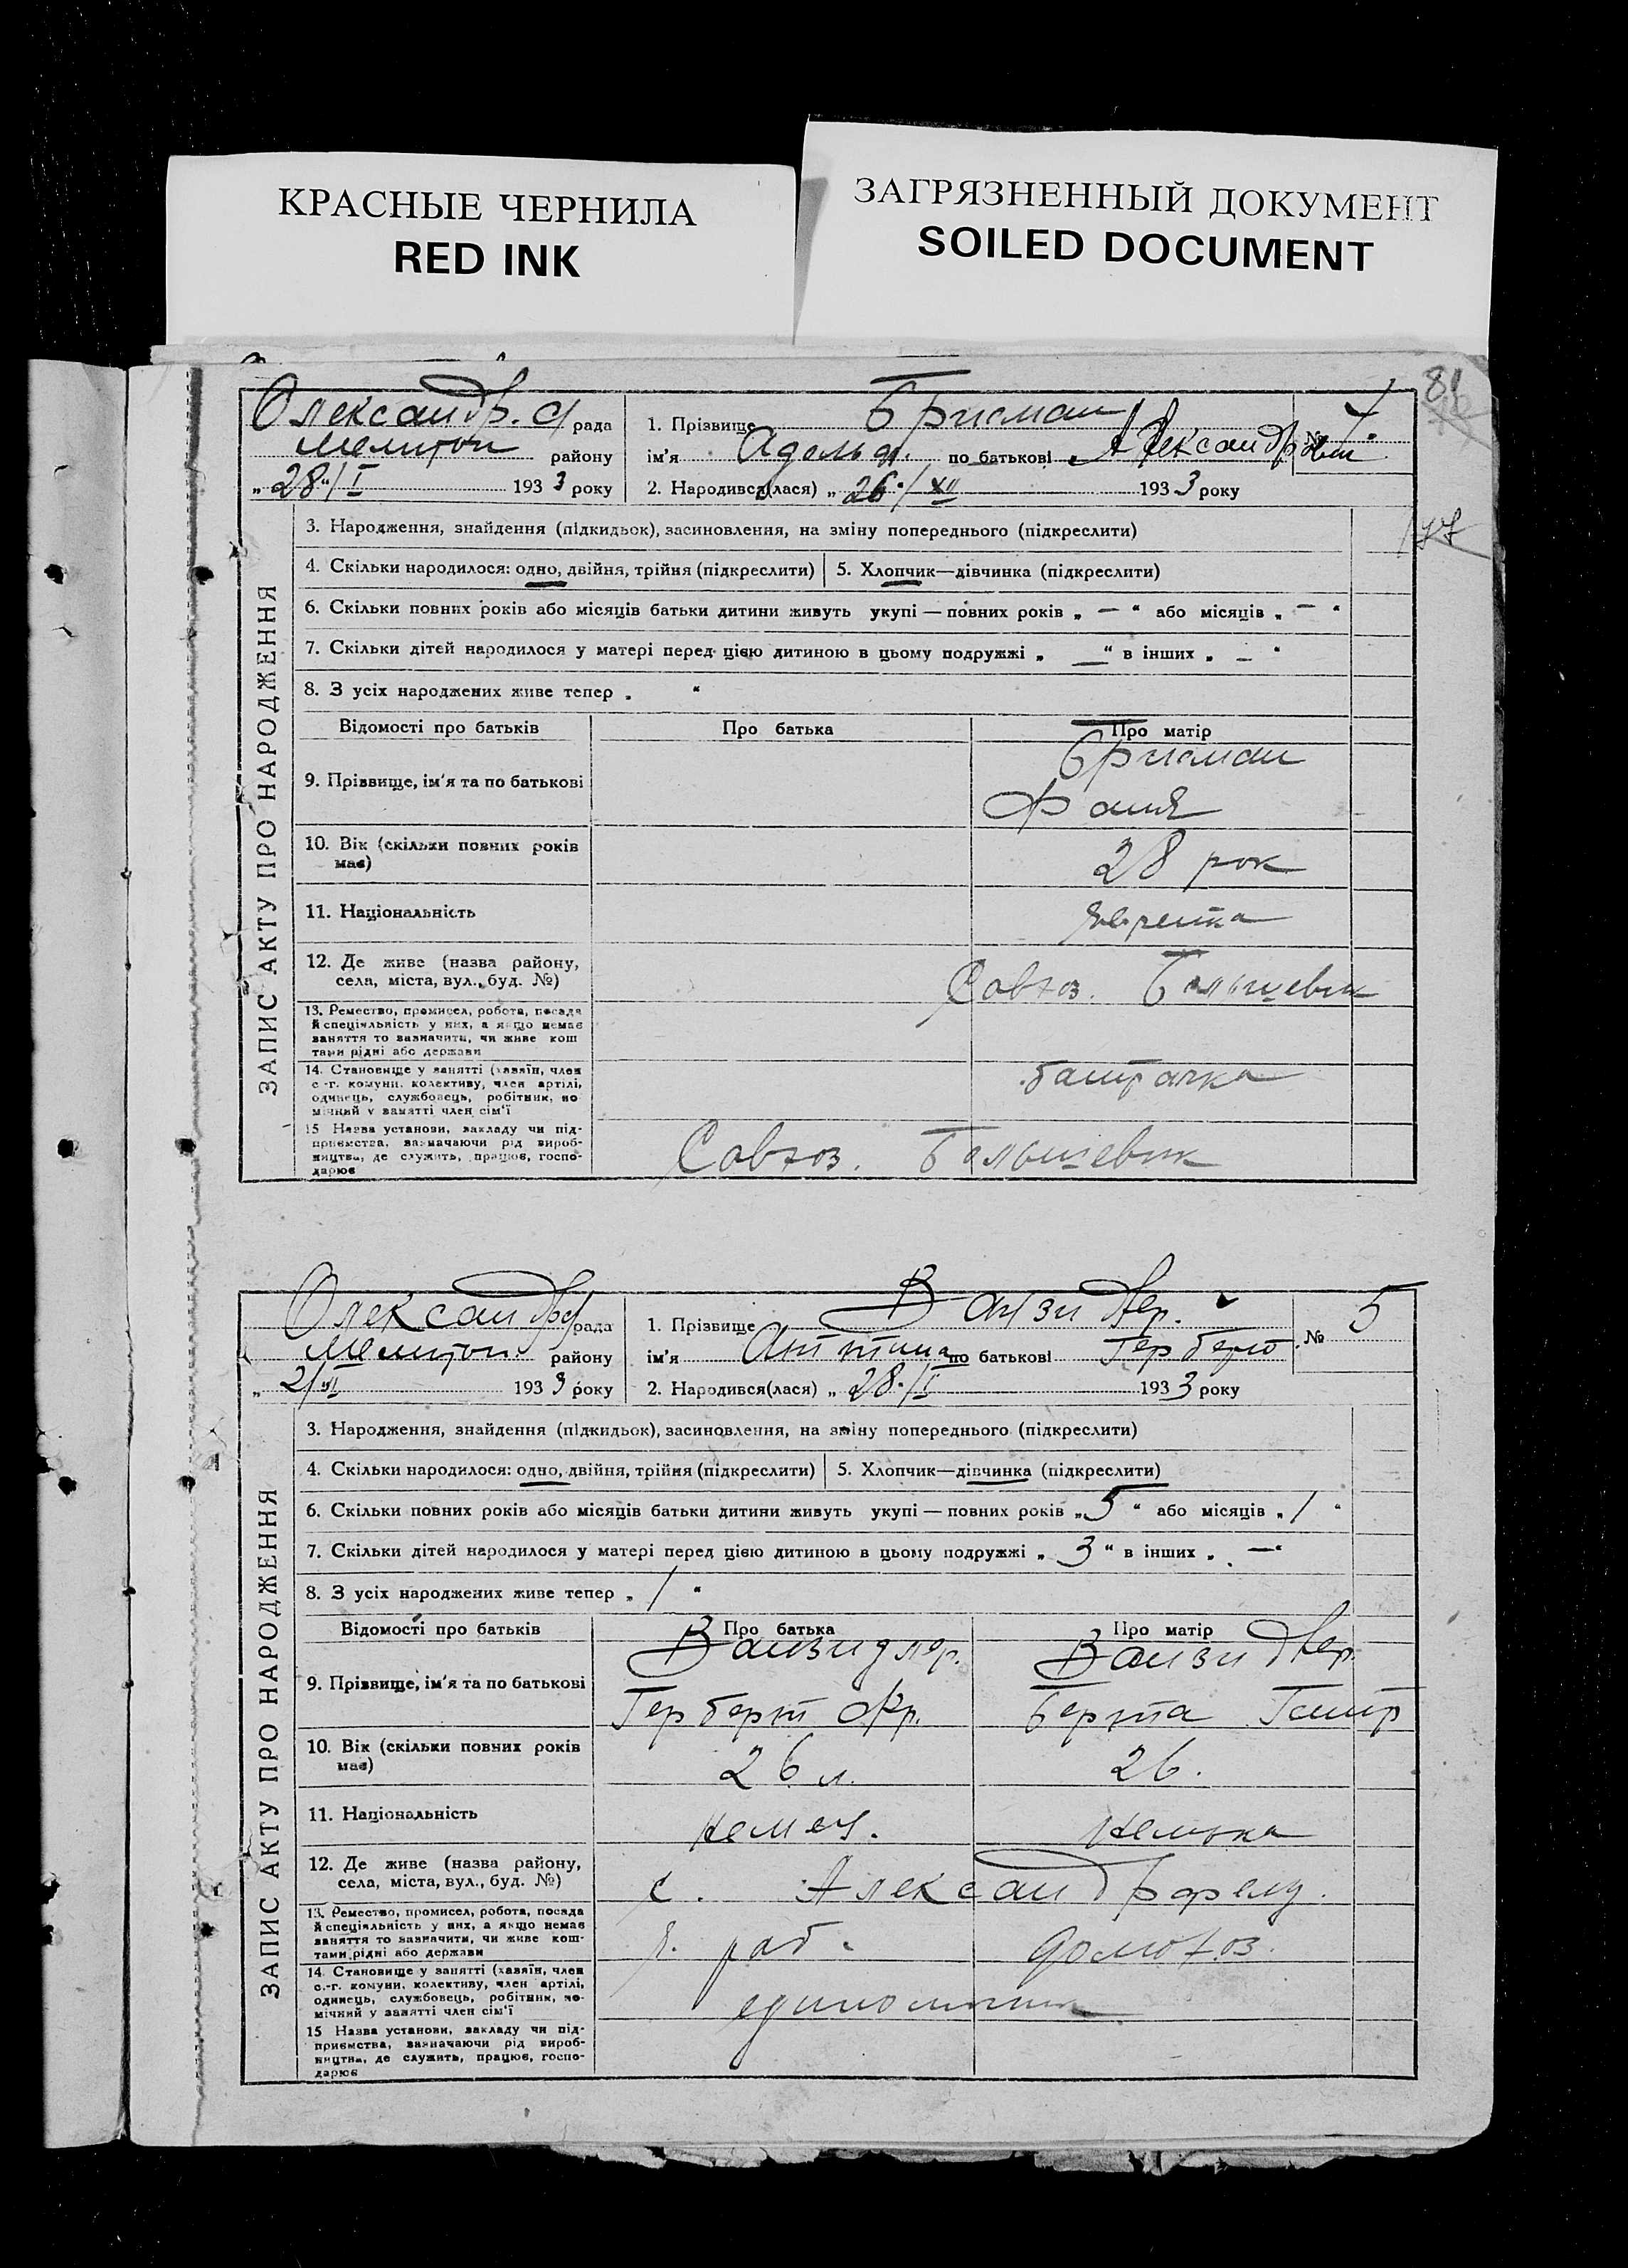 КРАСНЫЕ ЧЕРНИЛА
RED INK
ЗАГРЯЗНЕННЫЙ ДОКУМЕНТ
SOILED DOCUMENT
81
Олександр. рада
Мелитоп району
„28“/I 1933 року
1. Прізвище Брисман
ім'я Адольф. по батькові Александров
№ 4
2. Народився(лася) „26“/XII 1933 року
ЗАПИС АКТУ ПРО НАРОДЖЕННЯ
3. Народження, знайдення (підкидьок), засиновлення, на зміну попереднього (підкреслити)
4. Скільки народилося: одно, двійня, трійня (підкреслити) 5. Хлопчик—дівчинка (підкреслити)
6. Скільки повних років або місяців батьки дитини живуть укупі — повних років „ — “ або місяців „ — “
7. Скільки дітей народилося у матері перед цією дитиною в цьому подружжі „ — “ в інших „ — “
8. З усіх народжених живе тепер „ “
Відомості про батьків Про батька Про матір
9. Прізвище, ім'я та по батькові Брисман
Фаня
10. Вік (скільки повних років має) 28 рок
11. Національність Еврейка
12. Де живе (назва району, села, міста, вул., буд. №) Совхоз. Большевик
13. Ремество, промисел, робота, посада
й спеціяльність у них, а якщо немає
заняття то зазначити, чи живе кош
тами рідні або держави
14. Становище у занятті (хазяїн, член
с.-г. комуни, колективу, член артілі,
одинець, службовець, робітник, по
мічний у занятті член сім'ї батрачка
15 Назва установи, закладу чи під-
приємства, зазначаючи рід вироб-
ництва, де служить, працює, госпо-
дарює Совхоз. Большевик
Олександр рада
Мелитоп. району
„2/II 1933 року
1. Прізвище Ванзидлер.
ім'я по батькові Герберт.
№ 5
2. Народився(лася) „28“/I 1933 року
ЗАПИС АКТУ ПРО НАРОДЖЕННЯ
3. Народження, знайдення (підкидьок), засиновлення, на зміну попереднього (підкреслити)
4. Скільки народилося: одно, двійня, трійня (підкреслити) 5. Хлопчик—дівчинка (підкреслити)
6. Скільки повних років або місяців батьки дитини живуть укупі — повних років „5“ або місяців „1“
7. Скільки дітей народилося у матері перед цією дитиною в цьому подружжі „3“ в інших „—“
8. З усіх народжених живе тепер „1“
Відомості про батьків Про батька Про матір
9. Прізвище, ім'я та по батькові Ванзидлер. Ванзидлер.
Герберт Фр. Берта
10. Вік (скільки повних років має) 26 л. 26.
11. Національність немец. немка
12. Де живе (назва району, села, міста, вул., буд. №) с. Александрфельд.
13. Ремество, промисел, робота, посада
й спеціяльність у них, а якщо немає
заняття то зазначити, чи живе кош-
тами рідні або держави раб. домохоз.
14. Становище у занятті (хазяїн, член
с.-г. комуни, колективу, член артілі,
одинець, службовець, робітник, по-
мічний у занятті член сім'ї единоличник
15 Назва установи, закладу чи під-
приємства, зазначаючи рід вироб-
ництва, де служить, працює, госпо-
дарює